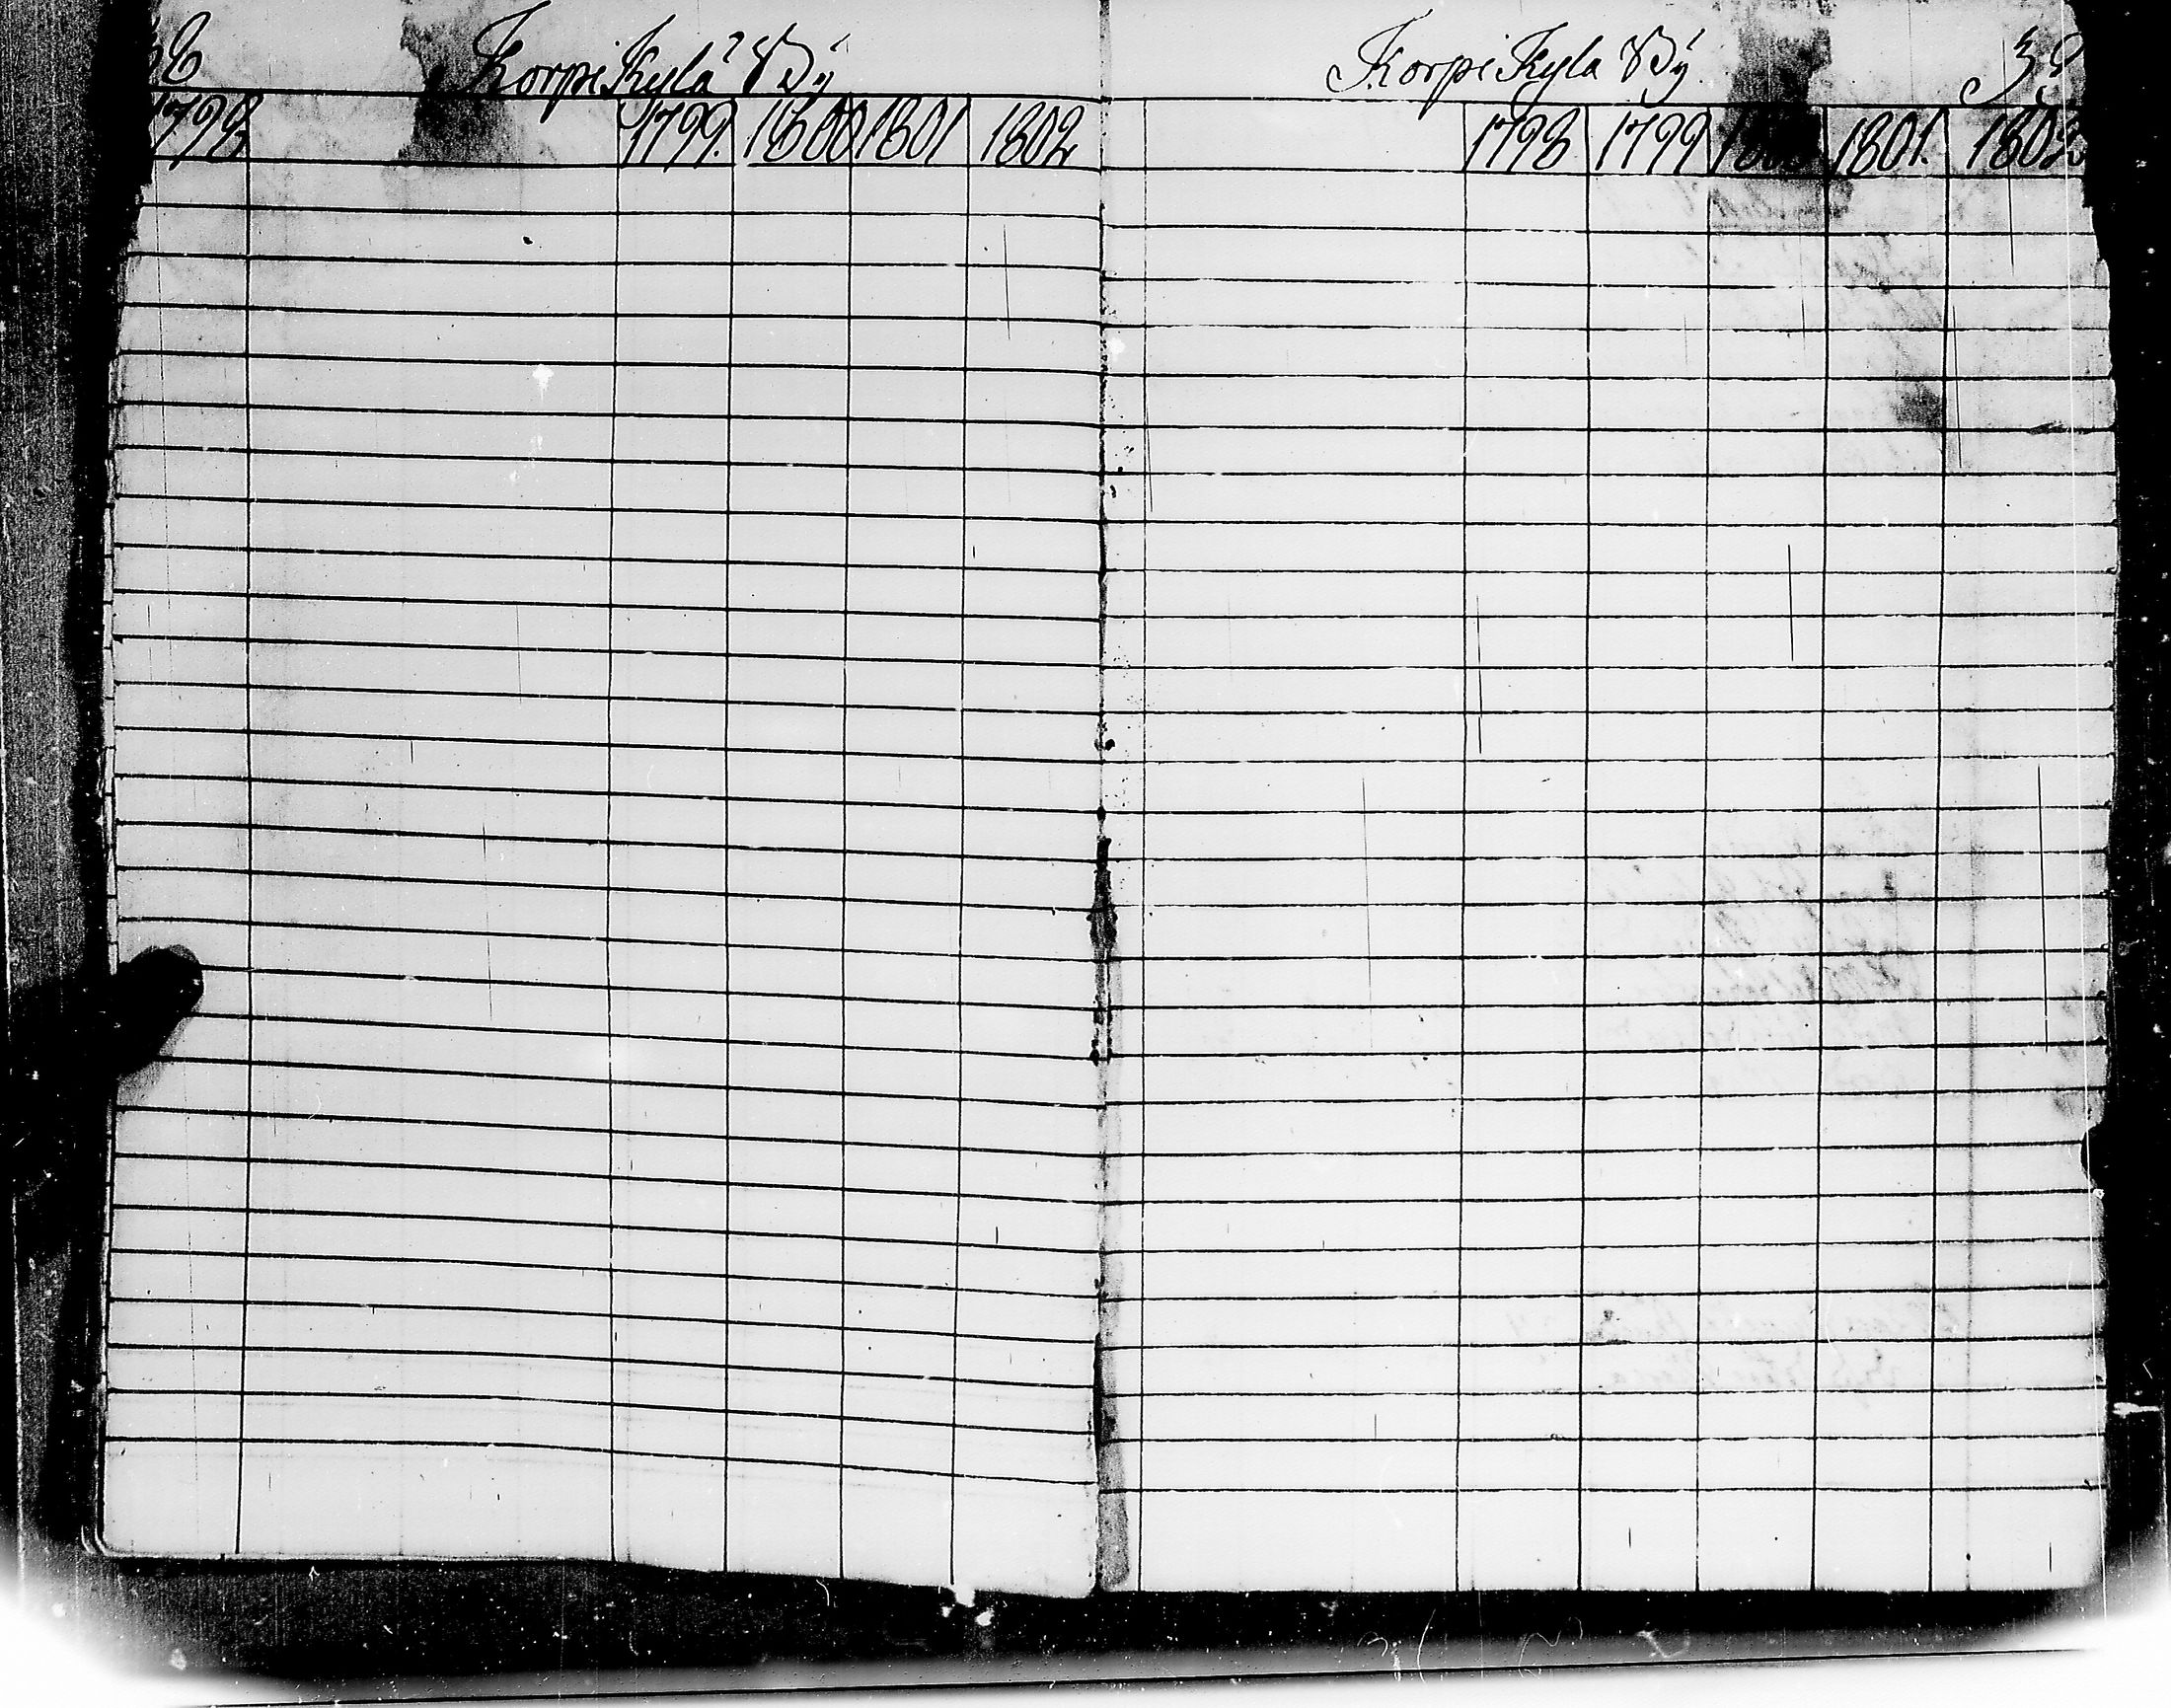 Korpi Kylä By
1798 1799. 1800 1801 1802
Korpi Kyla By
1798 1799 1800 1801. 1802